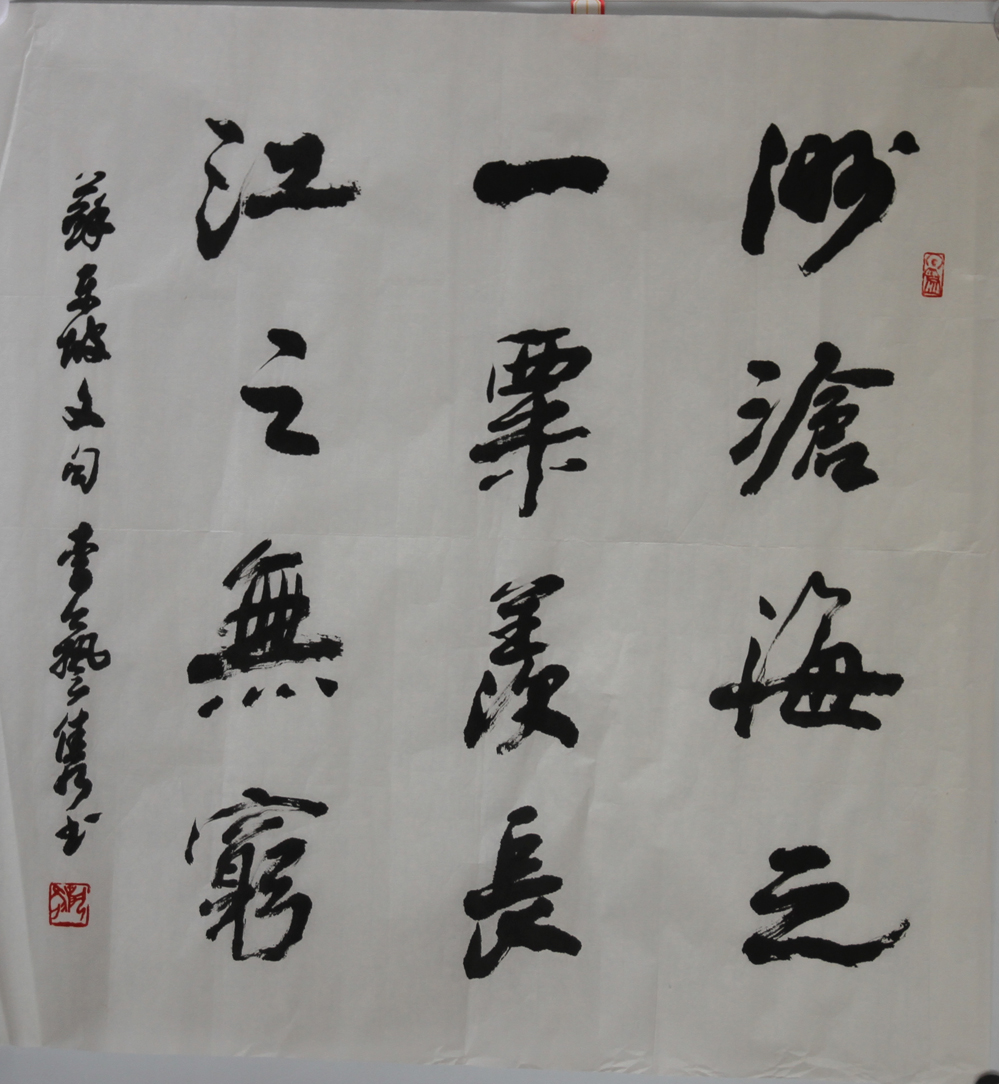 渺滄海之
一粟羨長
江之無窮
蘇東坡文句 李藝隽书